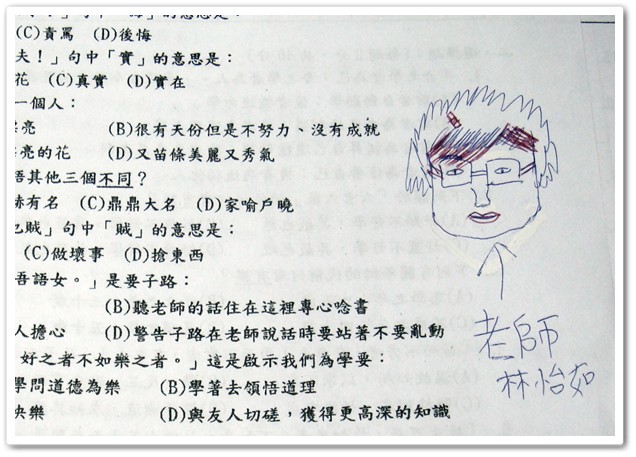 」句中「的意思是：
(C)責罵 (D)後悔
夫！」句中「實」的意思是：
花 (C)真實 (D)實在
一個人：
亮 (B)很有天份但是不努力、沒有成就
亮的花 (D)又苗條美麗又秀氣
其他三個不同？
赫有名 (C)鼎鼎大名 (D)家喻戶曉
賊」句中「賊」的意思是：
(C)做壞事 (D)搶東西
吾語女。」是要子路：
(B)聽老師的話住在這裡專心唸書
人擔心 (D)警告子路在老師說話時要站著不要亂動
好之者不如樂之者。」這是啟示我們為學要：
學問道德為樂 (B)學著去領悟道理
快樂 (D)與友人切磋，獲得更高深的知識
老師
林怡如